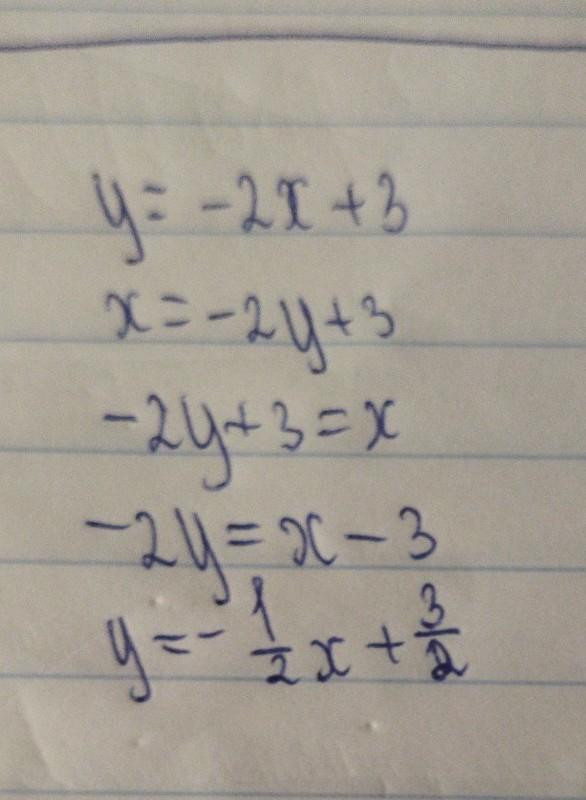 y = -2x + 3
x = -2y + 3
-2y + 3 = x
-2y = x - 3
y = - 1/2 x + 3/2